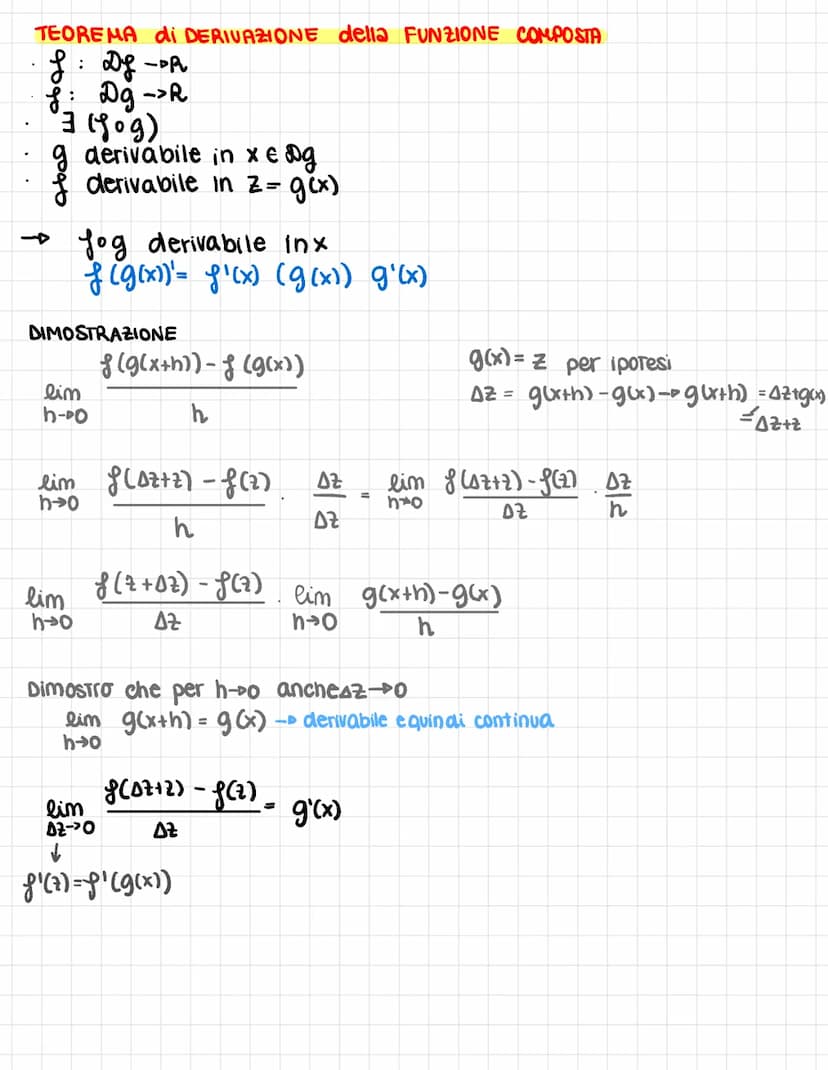 TEOREMA di DERIVAZIONE della FUNZIONE COMPOSTA
· f : Df → R
f : Dg → R
· ∃ (fog)
· g derivabile in x ∈ Dg
· f derivabile in z = g(x)
→ fog derivabile in x
f(g(x))' = f'(x) (g(x)) g'(x)
DIMOSTRAZIONE
lim h→0 f(g(x+h)) - f(g(x)) / h
g(x) = z per ipotesi
Δz = g(x+h) - g(x) → g(x+h) = Δz+g(x)
= Δz+z
lim h→0 f(Δz+z) - f(z) / h · Δz / Δz = lim h→0 f(Δz+z) - f(z) / Δz · Δz / h
lim h→0 f(z+Δz) - f(z) / Δz · lim h→0 g(x+h)-g(x) / h
Dimostro che per h→0 anche Δz→0
lim h→0 g(x+h) = g(x) → derivabile e quindi continua
lim Δz→0 f(Δz+z) - f(z) / Δz = g'(x)
↓
f'(z) = f'(g(x))